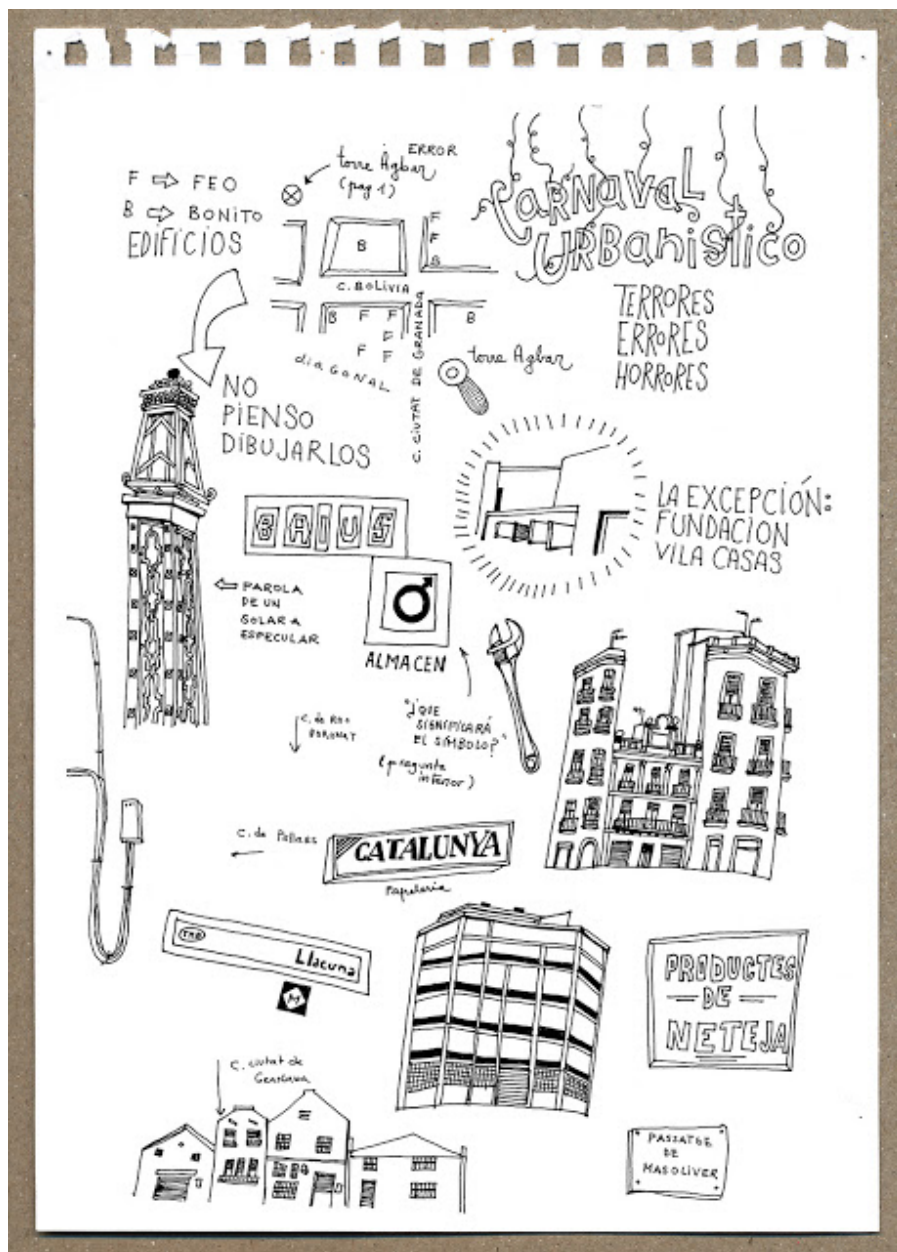 F ⇨ FEO
B ⇨ BONITO
EDIFICIOS
ERROR
torre Agbar
(pag 1)
F
F
B
B
C. BOLIVIA
B F F
F
F F
B
diAGONAL
C. CIUTAT DE GRANADA
torre Agbar
CARNAVAL
URBANISTICO
TERRORES
ERRORES
HORRORES
NO
PIENSO
DIBUJARLOS
LA EXCEPCIÓN:
FUNDACION
VILA CASAS
BAIUS
ALMACEN
⇦ FAROLA
DE UN
SOLAR A
ESPECULAR
"¿QUE
SIGNIFICARÁ
EL SÍMBOLO?"
(pregunta
interior)
C. de ROC
BORONAT
C. de Pallars
CATALUNYA
Papeleria
TMB
Llacuna
M
PRODUCTES
DE
NETEJA
C. ciutat de
Granada
PASSATGE
DE
MASOLIVER